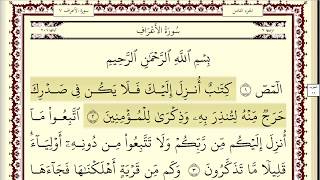 سُورَةُ الْأَعْرَافِ
بِسْمِ اللَّهِ الرَّحْمَٰنِ الرَّحِيمِ
الٓمٓصٓ ١ كِتَٰبٌ أُنزِلَ إِلَيْكَ فَلَا يَكُن فِى صَدْرِكَ
حَرَجٌ مِّنْهُ لِتُنذِرَ بِهِۦ وَذِكْرَىٰ لِلْمُؤْمِنِينَ ٢ ٱتَّبِعُوا۟ مَآ
أُنزِلَ إِلَيْكُم مِّن رَّبِّكُمْ وَلَا تَتَّبِعُوا۟ مِن دُونِهِۦٓ أَوْلِيَآءَ
قَلِيلًا مَّا تَذَكَّرُونَ ٣ وَكَم مِّن قَرْيَةٍ أَهْلَكْنَٰهَا فَجَآءَهَا